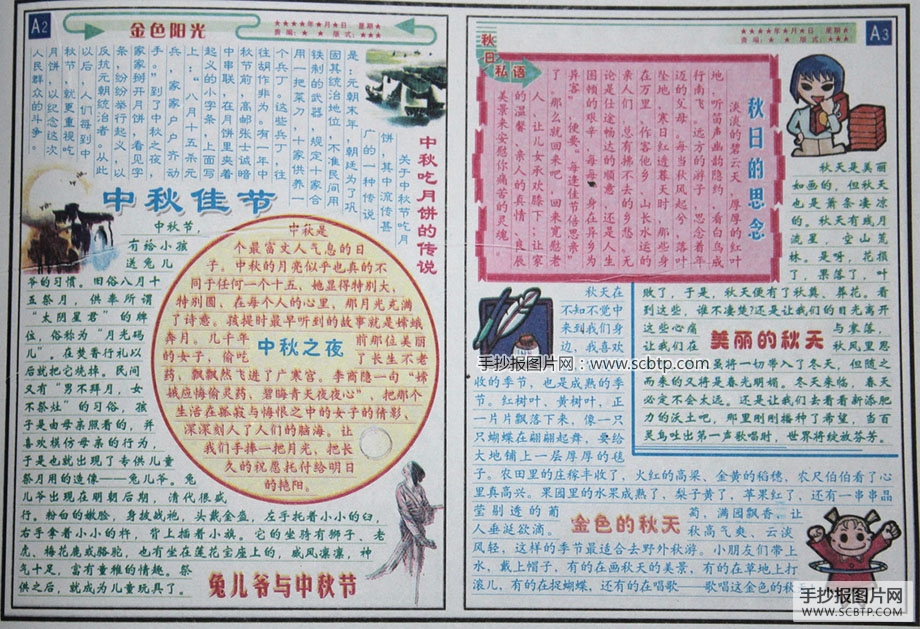 A2
金色阳光
★★★★年★月★日 星期★
责编：★ ★ 版式：★★★
中秋吃月饼的传说
关于中秋节吃月
饼，其中流传甚
广的一种传说
是：元朝末年，朝廷为了巩
固其统治地位，不准民间用
铁制的武器，规定十家合
用一把菜刀，十家供养一
个兵丁。这些兵丁，往
往胡作非为。有一年中
秋节前，高邮张士诚暗
中串联，在月饼里夹着
起义的小字条，上面写
上：“八月十五杀元
兵，家家户户齐动
手”，到了中秋之夜，
家家掰开月饼，看见字
条，纷纷举行起义，以
反抗元朝统治者。从此
以后，人们每到中
秋节，就更重视吃
月饼，以纪念这次
人民群众的斗争。
中秋佳节
中秋节，
有给小孩
送兔儿
爷的习惯。旧俗八月十
五祭月，供奉所谓
“太阴星君”的牌
位，俗称为“月光码
儿”。在焚香行礼以
后就把它烧掉。民间
又有“男不拜月，女
不祭灶”的习俗，孩
子是由母亲照看的，并
喜欢模仿母亲的行为，
于是也就出现了专供儿童
祭月用的造像——兔儿爷。兔
儿爷出现在明朝后期，清代很盛
行。粉白的嫩脸，身披战袍，头戴金盔，左手托着小小的臼，
右手拿着小小的杵，背上插着小旗。它的坐骑有狮子、老
虎、梅花鹿或骆驼，也有坐在莲花宝座上的，威风凛凛，神
气十足，富有童稚的情趣。祭
供之后，就成为儿童玩具了。
兔儿爷与中秋节
中秋之夜
中秋是
个最富文人气息的日
子。中秋的月亮似乎也真的不
同于任何一个十五，她显得特别大，
特别圆，在每个人的心里，那月光充满
了诗意。孩提时最早听到的故事就是嫦娥
奔月。几千年前那位美丽
的女子，偷吃了长生不老
药，飘飘然飞进了广寒宫。李商隐一句“嫦
娥应悔偷灵药，碧海青天夜夜心”，把那个
生活在孤寂与悔恨之中的女子的倩影，
深深刻入了人们的脑海。让
我们手捧一把月光，把长
久的祝愿托付给明日
的艳阳。
秋日私语
★★★★年★月★日 星期★
责编：★ ★ 版式：★★★
A3
秋日的思念
淡淡的碧云天，厚厚的红叶
地，听笛声幽韵隐约，看白鸟成
行南飞，远方的游子，思念着年
迈的父母，每当秋风时起兮，落叶
坠地，寒日红透暮天时，那些身
在万里，作客他乡，山长水远的
亲人们，总有拂不去的乡愁，无
论是仕途畅达的顺意，还是人生
困顿的艰辛，每一每“身在异乡为
异客”，便要“每逢佳节倍思亲”
了。那么就回来吧，回来宽慰老
人，让儿女承欢膝下；让家
的温馨、亲人的真情、良辰
美景来安慰你痛苦的灵魂。
秋天是美丽
如画的，但秋天
也是萧条凄凉
的。秋天有残月
流星，空山荒
林。是呀，花损
了，果落了，叶
败了，于是，秋天便有了秋冀、葬花。看
到这些，谁不凄楚?还是让我们的目光离开
这些心痛与衰落，
让我们在秋风里思
虽将一切带入了冬天，但随之
而来的又将是春光明媚。冬天来临，春天
必定不会太远。还是让我们去看看新添肥
力的沃土吧。那里刚刚播种了希望，当百
灵鸟吐出第一声歌唱时，世界将绽放芬芳。
美丽的秋天
秋天在
不知不觉中
来到我们身
边，我喜欢
收的季节，也是成熟的季
节。红树叶，黄树叶，正
一片片飘落下来，像一只
只蝴蝶在翩翩起舞，要给
大地铺上一层厚厚的毯
子。农田里的庄稼丰收了，火红的高粱，金黄的稻穗，农尺伯伯看了心
里真高兴。果园里的水果成熟了，梨子黄了，苹果红了，还有一串串晶
莹剔透的葡萄，满园飘香，让
人垂涎欲滴。秋高气爽、云淡
风轻，这样的季节最适合去野外秋游。小朋友们带上
水，戴上帽子，有的在画秋天的美景，有的在草地上打
滚儿，有的在捉蝴蝶，还有的在唱歌——歌唱这金色的秋
金色的秋天
手抄报图片网：www.scbtp.com
手抄报图片网
WWW.SCBTP.COM